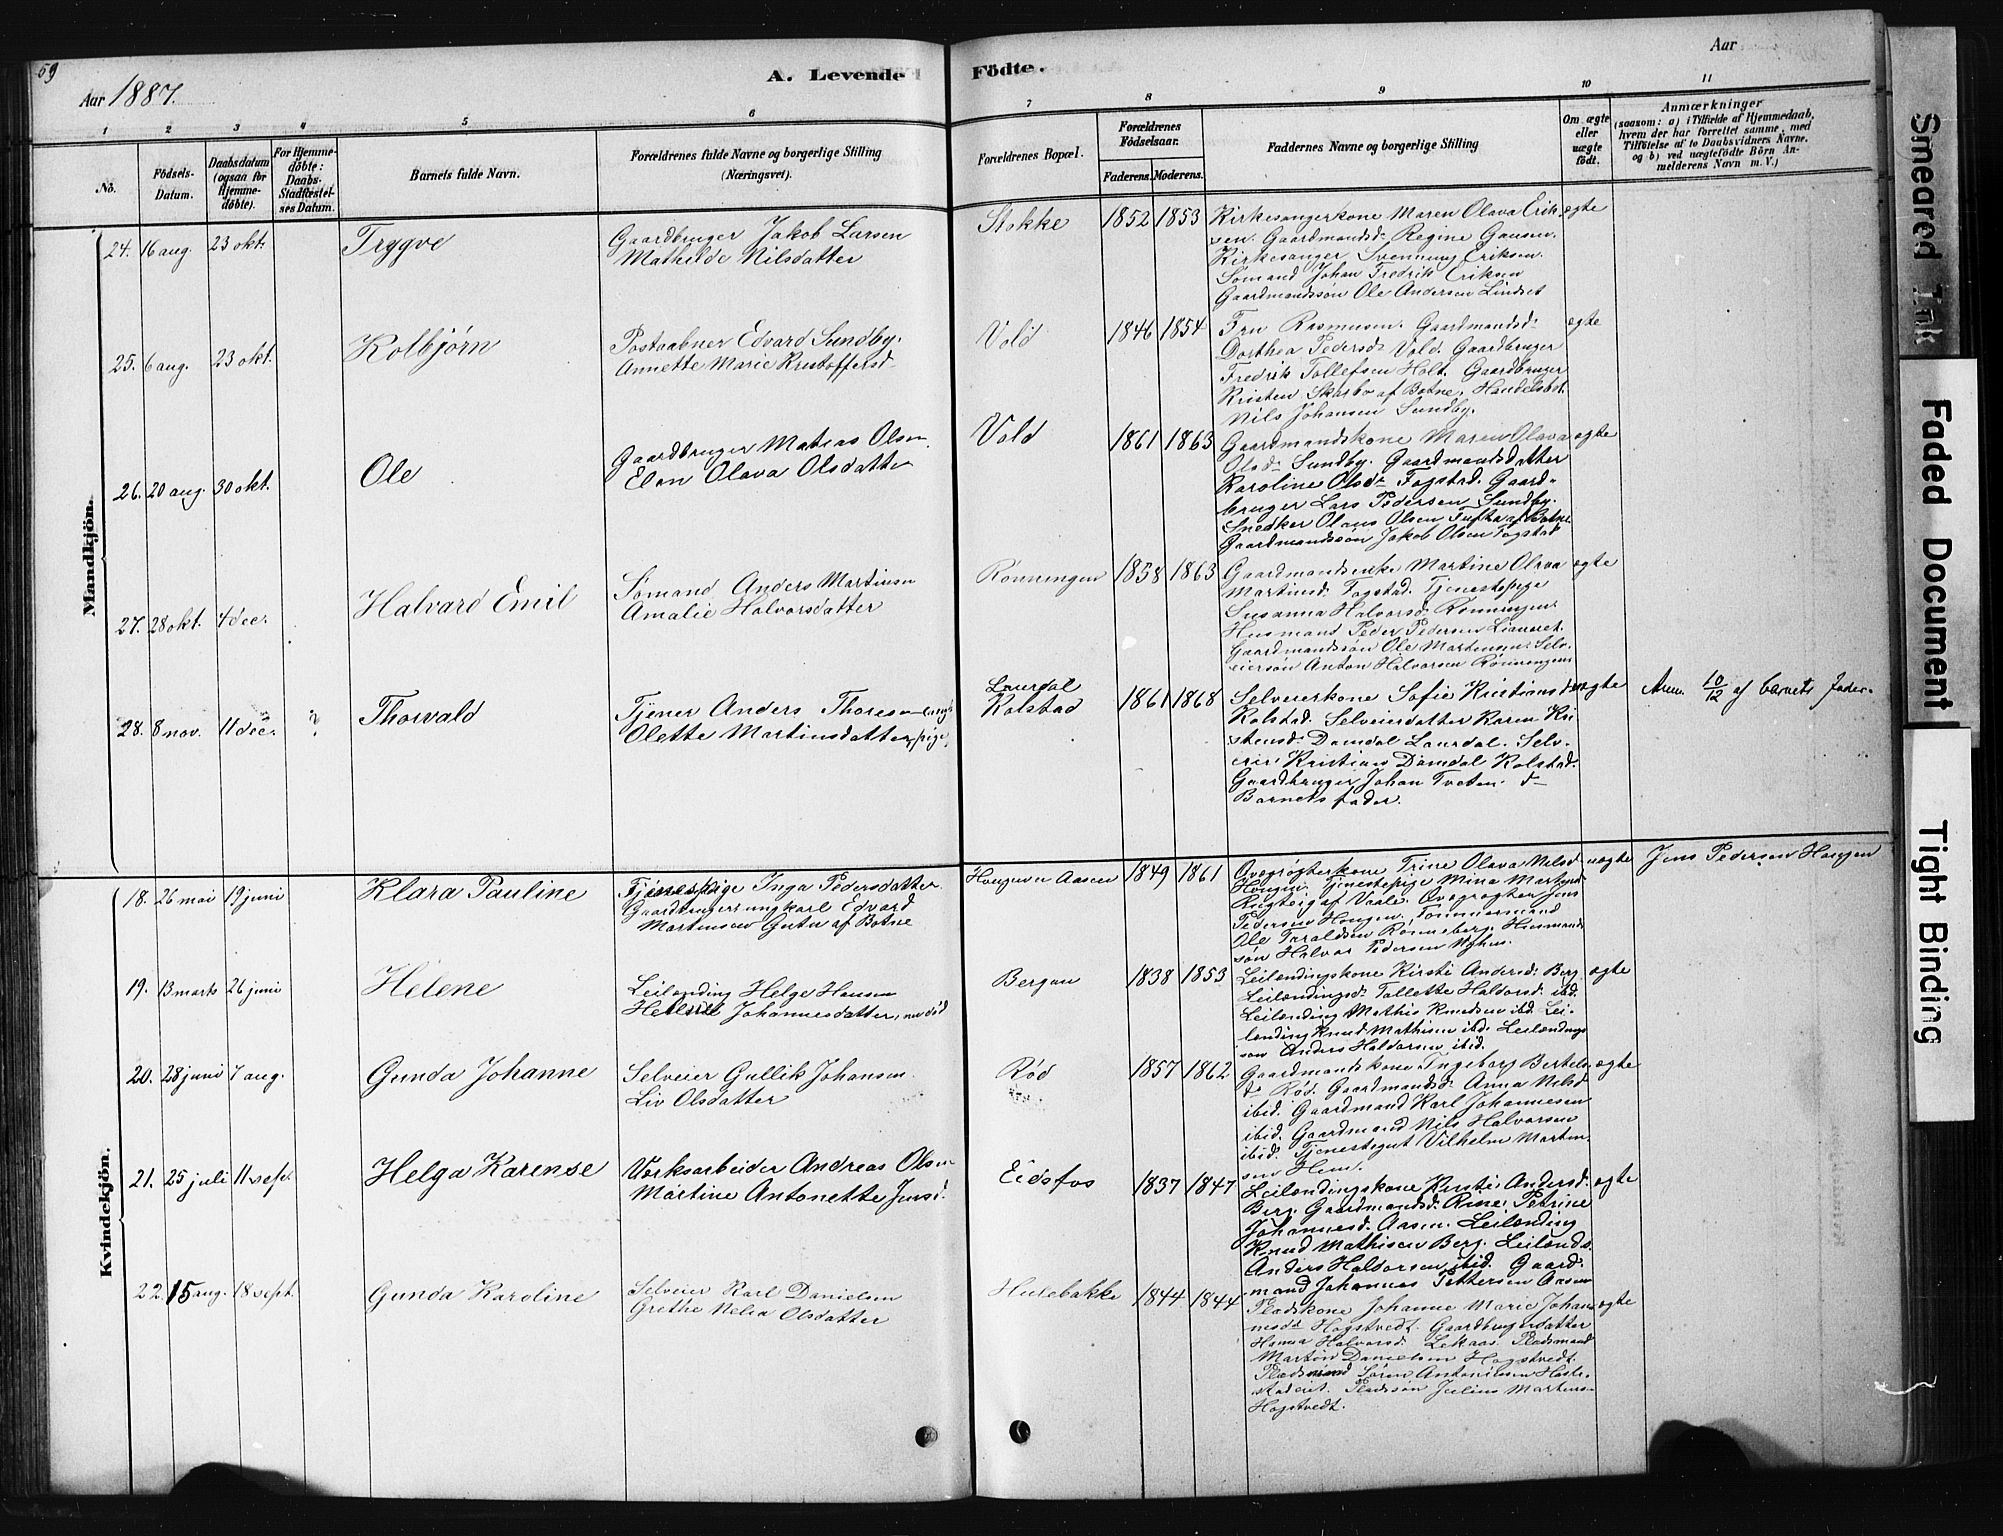 59
Aar 1887.
A. Levende
Födte.
Aar
1
2
3
4
5
6
7
8
9
10
11
No.
Födsels-
Datum.
Daabsdatum
(ogsaa for
Hjemme-
döbte).
For Hjemme-
döbte:
Daabs-
Stadfæstel-
ses Datum.
Barnets fulde Navn.
Forældrenes fulde Navne og borgerlige Stilling
(Næringsvei).
Forældrenes Bopæl.
Forældrenes
Födselsaar.
Faderens.
Moderens.
Faddernes Navne og borgerlige Stilling
Om ægte
eller
uægte
födt.
Anmærkninger
(saasom: a) i Tilfælde af Hjemmedaab,
hvem der har forrettet samme, med
Tilföielse af to Daabsvidners Navne.
og b) ved uægtefödte Börn An-
melderens Navn m. V.)
Mandkjön.
24. 16 aug 23 okt. Trygve
Gaardbruger Jakob Larsen
Mathilde Nilsdatter
Stokke 1852 1853
Kirkesangerkone Maren Olava Erik-
sen. Gaardmandsd. Regine Hansen.
Kirkesanger Svennung Eriksen.
Sømand Johan Fredrik Eriksen
Gaardmandssøn Ole Andersen Lindset
ægte
25. 6 aug. 23 okt. Kolbjørn
Postaabner Edvard Sundby.
Annette Marie Kristoffersd.
Vold 1846 1854
Fru Rasmussen. Gaardmandsd.
Dorthea Pedersd. Vold. Gaardbruger
Fredrik Tollefsen Holt. Gaardbruger
Kristen Skarbo af Botne. Handelsbet.
Nils Johansen Sundby.
ægte
26. 20 aug. 30 okt. Ole
Gaardbruger Matias Olsen.
Elen Olava Olsdatter
Vold 1861 1863
Gaardmandskone Maren Olava
Olsd. Sundby. Gaardmandsdatter
Karoline Olsd. Fogstad. Gaard-
bruger Lars Pedersen Sundby.
Snedker Olaus Olsen Tufte af Botne
Gaardmandssøn Jakob Olsen Fogstad
ægte
27. 28 okt. 4 dec. Halvard Emil
Sømand Anders Martinsen
Amalie Halvorsdatter
Rønningen 1858 1863
Gaardmandsenke Martine Olava
Martinsd. Fogstad. Tjenestepige
Susanna Halvorsd. Rønningen.
Husmand Peder Pedersen
Gaardmandssøn Ole Martinsen. Selv-
eiersøn Anton Halvorsen Rønningen
ægte
28. 8 nov. 11 dec. ? Thorvald
Tjener Anders Thoresen
Olette Martinsdatter, pige,
Laurdal
Kolstad 1861 1868
Selveierkone Sofie Kristiansd.
Kolstad. Selveierdatter Karen Kri
stensd. Damdal Laurdal. Selv-
eier Kristian Damdal Kolstad.
Gaardbruger Johan Tveten. &
Barnets fader.
uægte
Anm. 10/12 af barnets Fader.
Kvindekjön.
18. 26 mai 19 juni Klara Pauline
Tjenestpige Inga Pedersdatter
Gaardbruger, ungkarl Edvard
Martinsen Guter af Botne
Haugen Aasen 1849 1861
Ovnrøgterkone Trine Olava Nilsd
Hougen. Tjenestepige Mina Martinsd
af Vaale. Ovnrøgter Jens
Pedersen Hougen. Tømmermand
Ole Taraldsen Rønneberg. Husmands
søn Halvor Pedersen
uægte
Jens Pedersen Hougen
19. 13 marts 26 juni Helene
Leilænding Helge Hansen
Helene Johannesdatter, nu død
Bergan 1838 1853
Leilændingskone Kirsti Andersd. Berg
Leilændingsd. Tollette Haldorsd. ibd.
Leilænding Mathis Knudsen ibd. Lei-
lænding Knud Mathisen ibd. Leilændings
søn Anders Haldorsen ibid.
ægte
20. 28 juni 7 aug. Gunda Johanne
Selveier Gullik Johansen.
Liv Olsdatter
Rød 1857 1862
Gaardmandskone Ingeborg Bertels
d. Rød. Gaardmandsd. Anna Nilsd
ibid. Gaardmand Karl Johannesen
ibid. Gaardmand Nils Halvorsen
ibid. Tjenestegut Vilhelm Martin
sen Hem.
ægte
21. 25 juli 11 sept. Helga Karense
Verksarbeider Andreas Olsen
Martine Antonette Jensd.
Eidsfos 1837 1847
Leilændingskone Kirsti Andersd.
Berg. Gaardmandsd. Rine Petrine
Johannesd. Aasen. Leilænding
Knud Mathisen Berg. Leilænds.
Anders Haldorsen ibid. Gaard-
mand Johannes Pettersen Aasen
ægte
22. 15 aug. 18 sept. Gunda Karoline
Selveier Karl Danielsen
Grethe Nelia Olsdatter
Hulebakke 1844 1844
Pladskone Johanne Marie Johan
nesdt. Hogstvedt. Gaardbrugerdatter
Hanna Halvorsd. Lekaas. Pladsmand
Martin Danielsen Hogstvedt.
Pladsmand Søren Antonisen
Pladssøn Julius Martins.
Hogstvedt.
ægte
Smeared Ink
Faded Document
Tight Binding